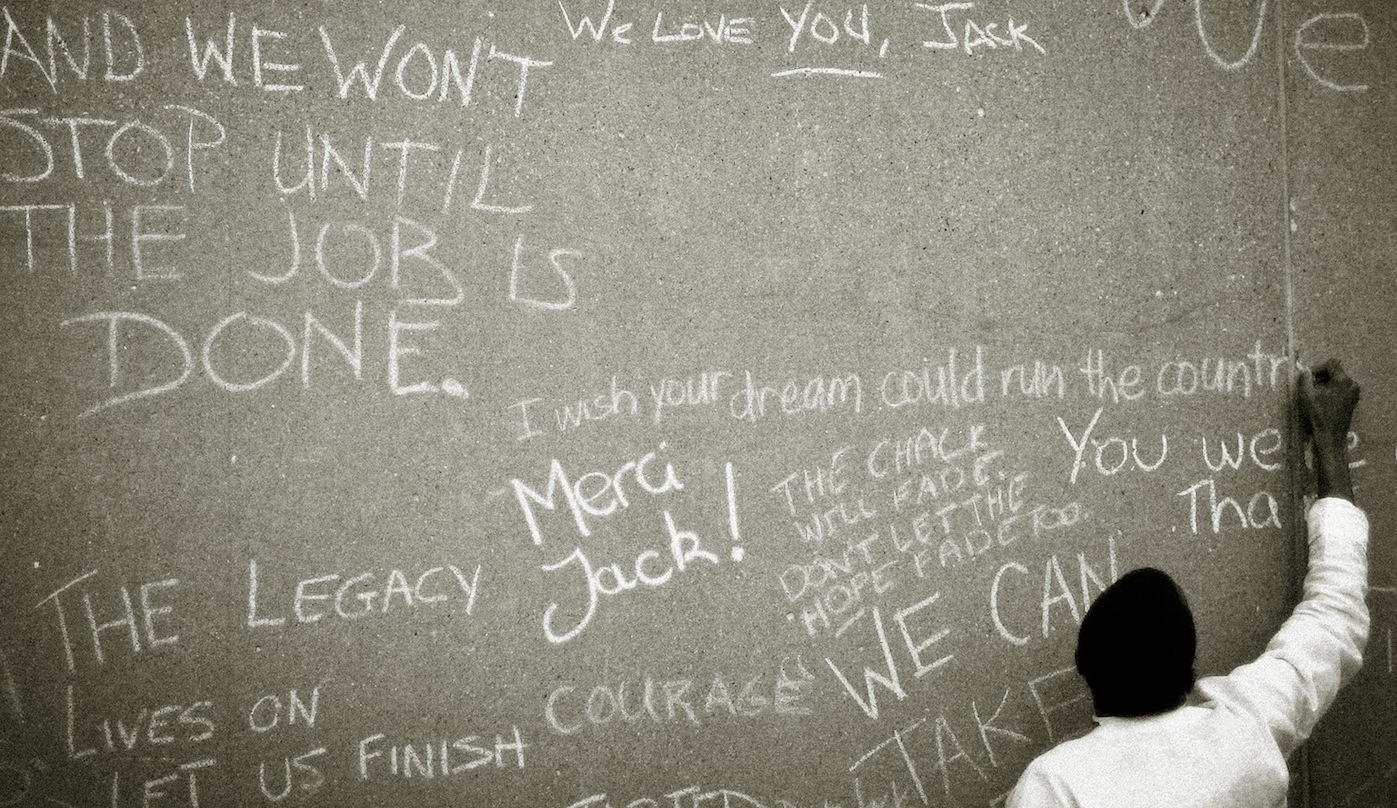 AND WE WON'T
STOP UNTIL
THE JOB IS
DONE.
We LOVE YOU, JACK
We
I wish your dream could run the countr
Merci
Jack!
THE CHALK
WILL FADE.
DON'T LET THE
HOPE FADE TOO.
You we e
Tha
THE LEGACY
LIVES ON
LET US FINISH
COURAGE
WE CAN
TAKE